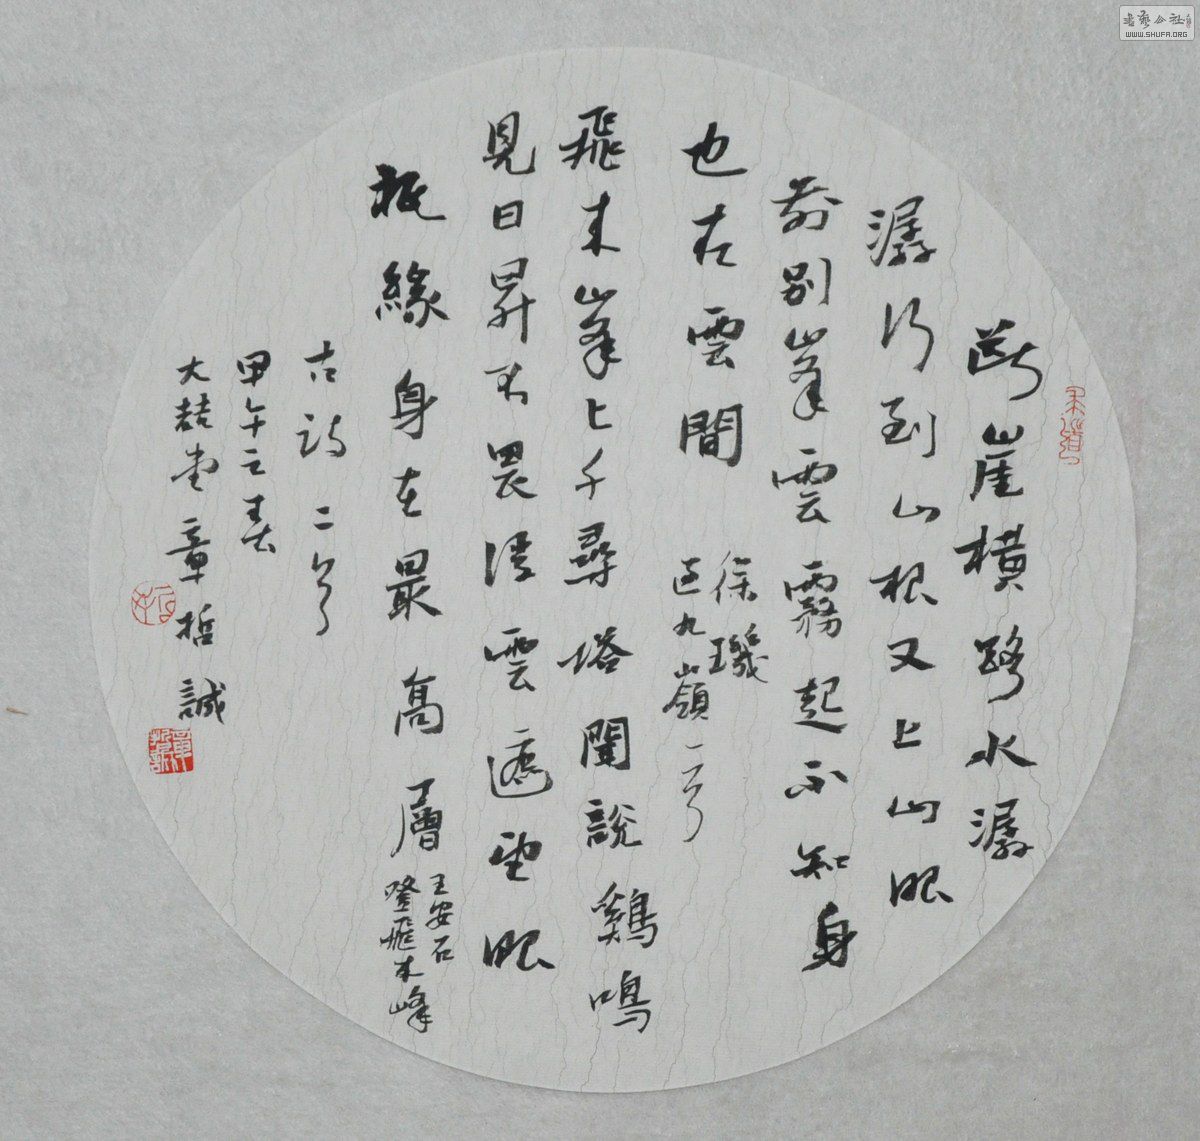 斷崖橫路水潺
潺行到山根又上山眼
前別峯雲霧起不知身
也在雲間
徐璣
過九嶺一首
飛来峯上千尋塔聞說鷄鳴
見日昇不畏浮雲遮望眼
祇緣身在最高層
王安石
登飛来峰
古詩二首
甲午之春
大喆堂章哲誠
章哲誠
書藝公社
WWW.SHUFA.ORG